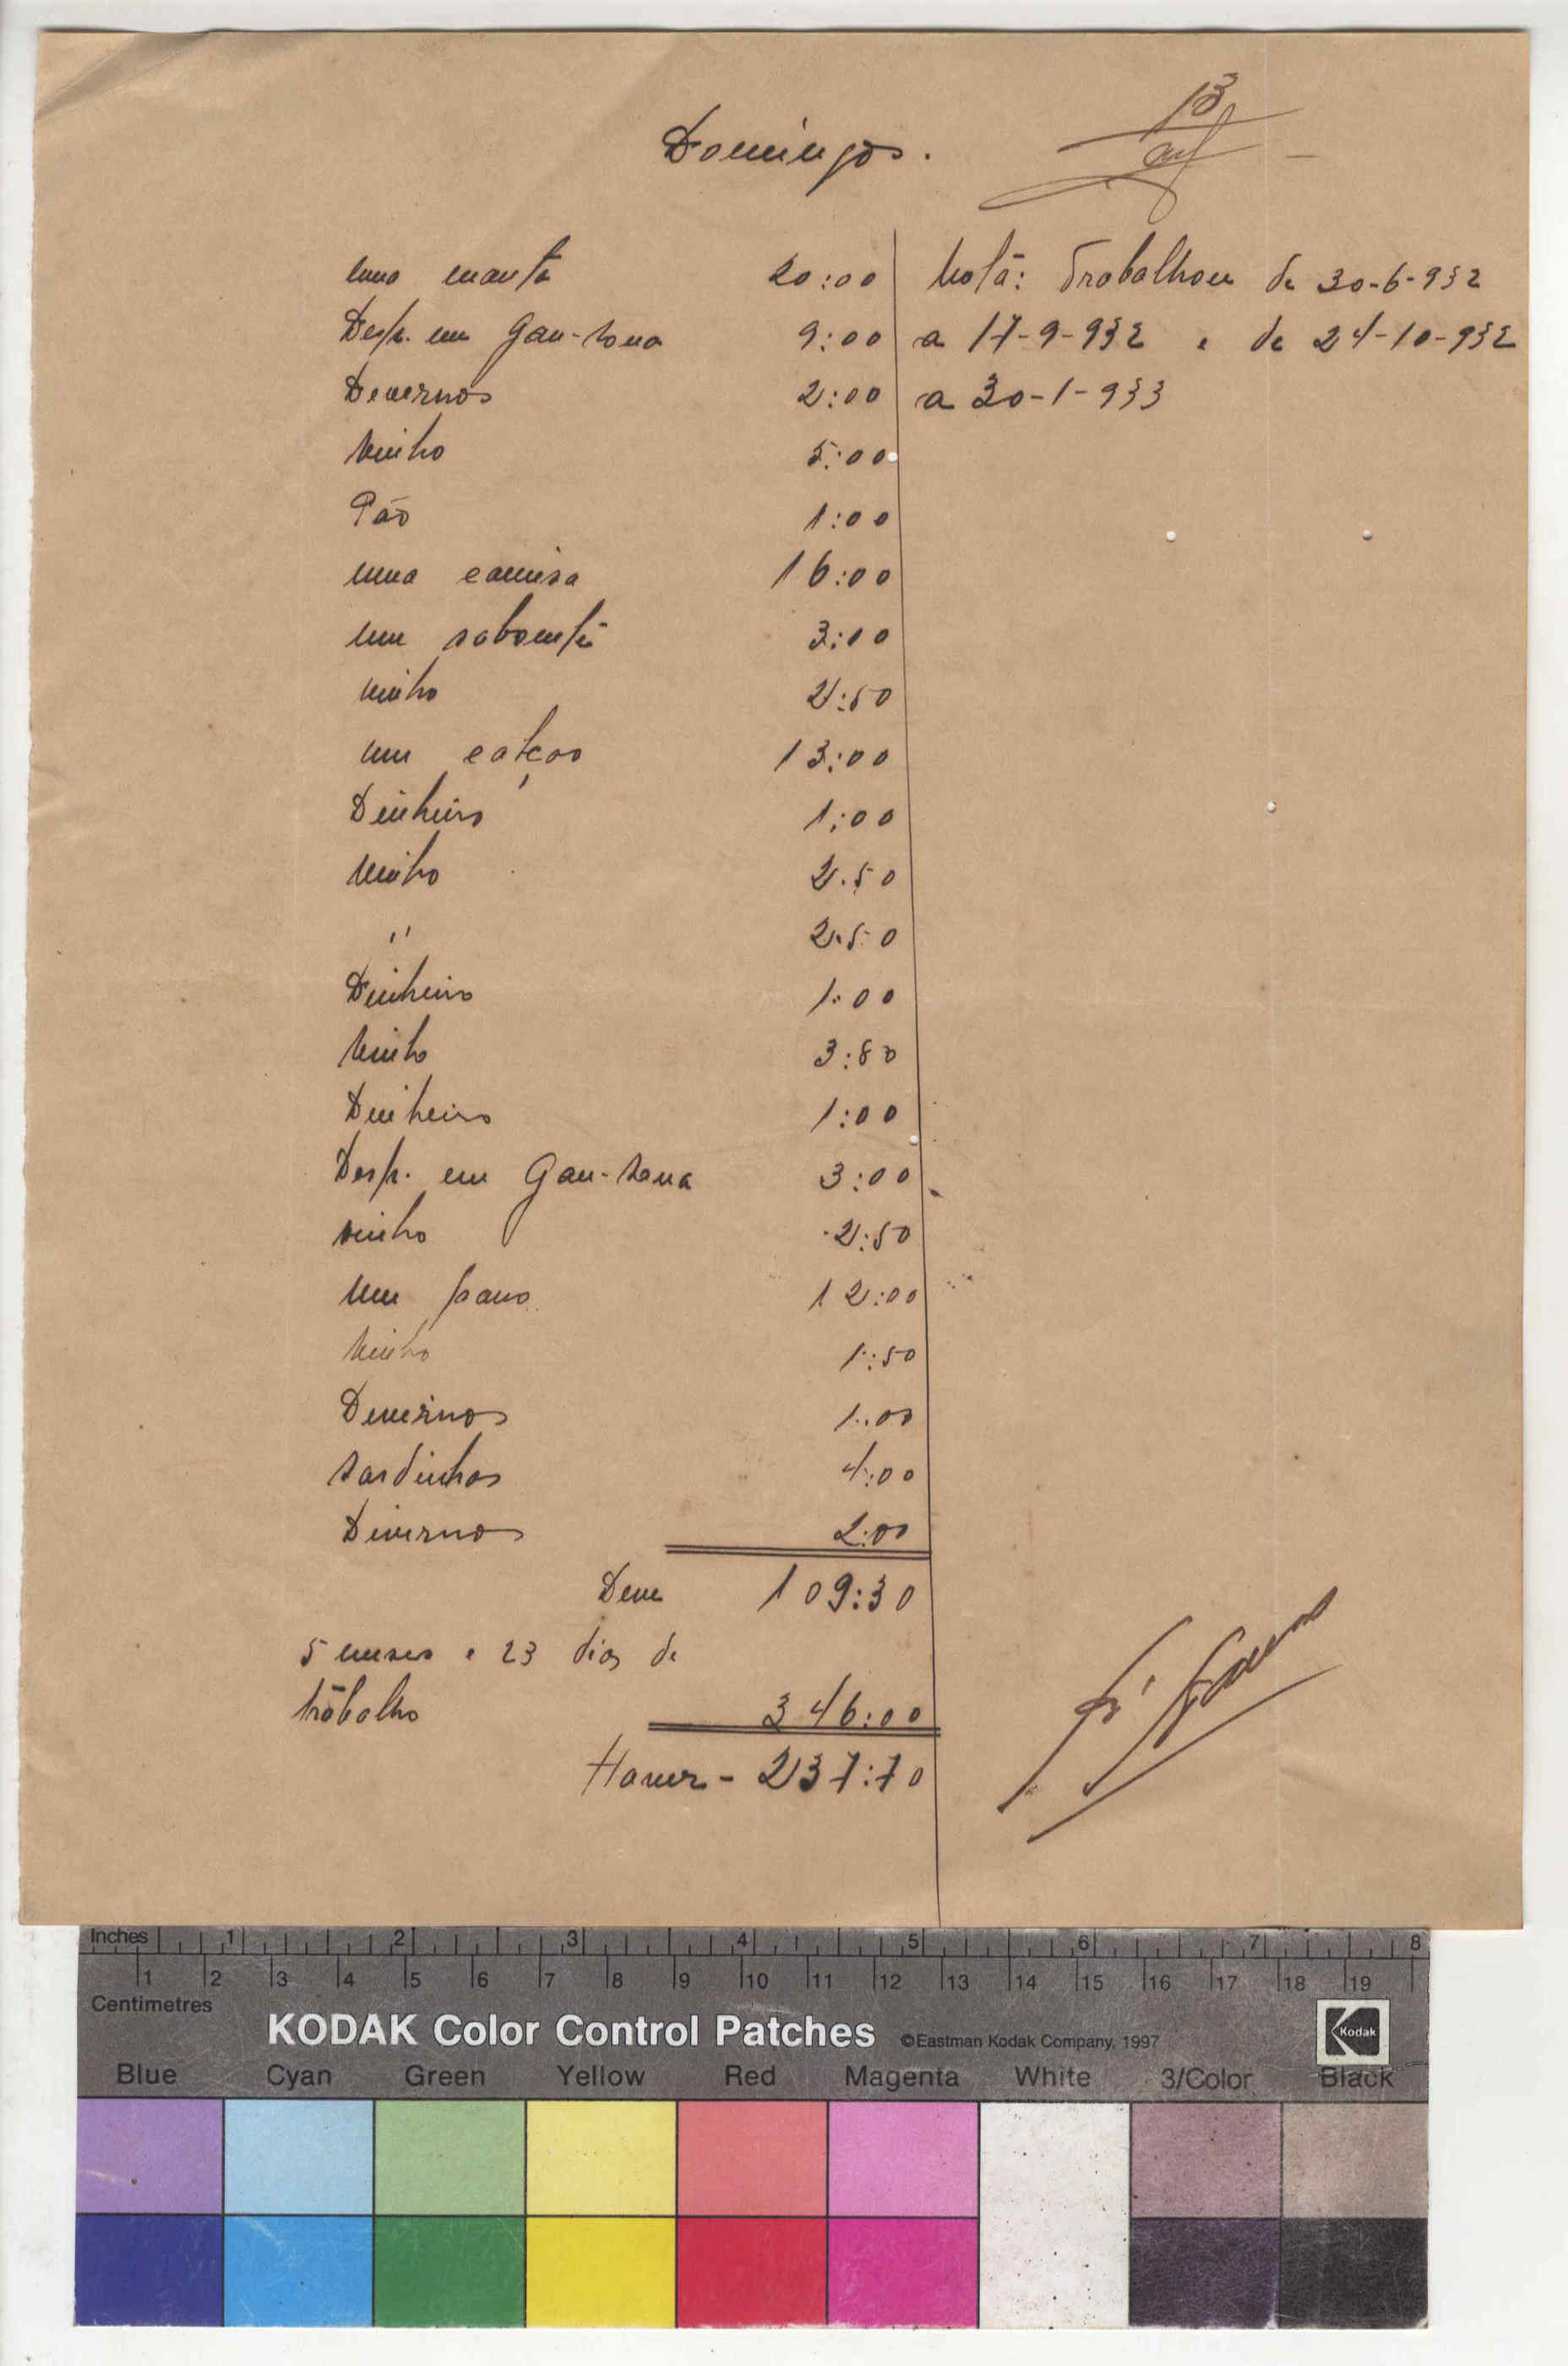 13
Domingos.
uma manta 20:00
Desp. em Gan-zona 9:00
Devernos 2:00
Vinho 5:00
Pão 1:00
uma camisa 16:00
um sabonte 3:00
vinho 2:50
um calção 13:00
Dinheiro 1:00
Vinho 2.50
" 2.50
Dinheiro 1:00
Vinho 3:80
Dinheiro 1:00
Desp. em Gan-zana 3:00
vinho 2:50
Um pano 12:00
Vinho 1:50
Devernos 1:00
Sardinhas 4:00
Diversos 2:00
Deve 109:30
5 meses e 23 dias de
trabalho 346:00
Haver - 237:70
Nota: Trabalhou de 30-6-932
a 17-9-932 e de 24-10-932
a 30-1-933
Inches 1 2 3 4 5 6 7 8
1 2 3 4 5 6 7 8 9 10 11 12 13 14 15 16 17 18 19
Centimetres
KODAK Color Control Patches ©Eastman Kodak Company, 1997 Kodak
Blue Cyan Green Yellow Red Magenta White 3/Color Black